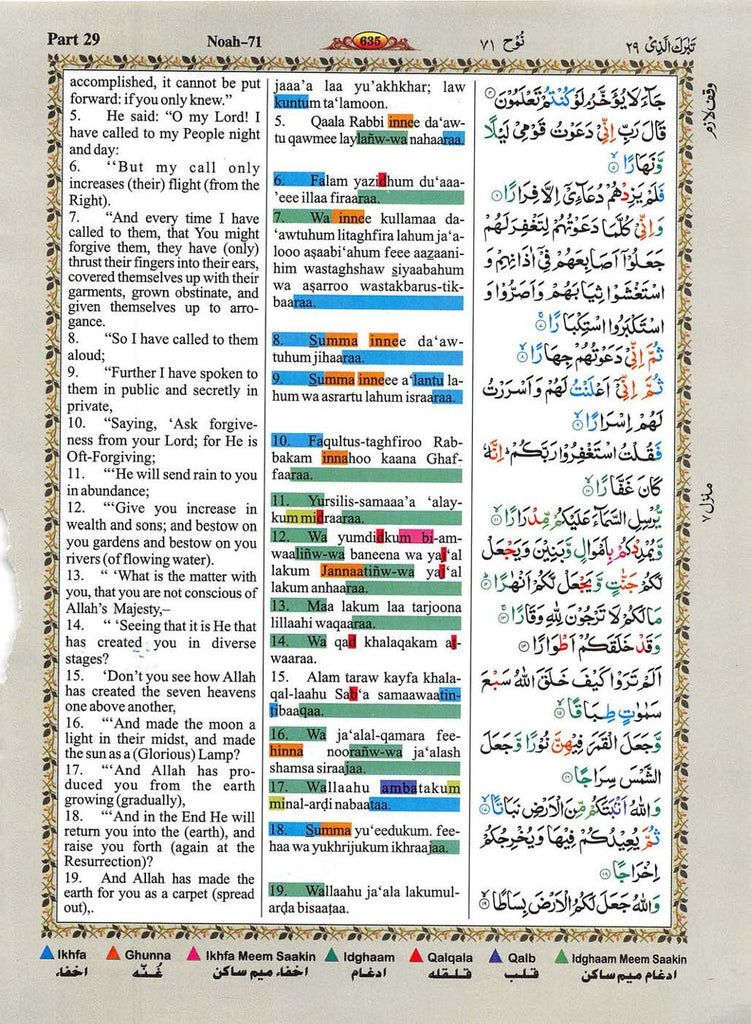 Part 29
Noah-71
635
نُوْح ٧١
تَبٰرَكَ الَّذِیْ ٢٩
accomplished, it cannot be put
forward: if you only knew.”
5. He said: “O my Lord! I
have called to my People night
and day:
6. ‘‘But my call only
increases (their) flight (from the
Right).
7. “And every time I have
called to them, that You might
forgive them, they have (only)
thrust their fingers into their ears,
covered themselves up with their
garments, grown obstinate, and
given themselves up to arro-
gance.
8. “So I have called to them
aloud;
9. “Further I have spoken to
them in public and secretly in
private,
10. “Saying, ‘Ask forgive-
ness from your Lord; for He is
Oft-Forgiving;
11. “‘He will send rain to you
in abundance;
12. “‘Give you increase in
wealth and sons; and bestow on
you gardens and bestow on you
rivers (of flowing water).
13. “ ‘What is the matter with
you, that you are not conscious of
Allah’s Majesty,–
14. “ ‘Seeing that it is He that
has created you in diverse
stages?
15. ‘Don’t you see how Allah
has created the seven heavens
one above another,
16. “‘And made the moon a
light in their midst, and made
the sun as a (Glorious) Lamp?
17. “‘And Allah has pro-
duced you from the earth
growing (gradually),
18. “‘And in the End He will
return you into the (earth), and
raise you forth (again at the
Resurrection)?
19. And Allah has made the
earth for you as a carpet (spread
out),.
jaaa’a laa yu’akhkhar; law
kuntum ta‘lamoon.
5. Qaala Rabbi innee da‘aw-
tu qawmee laylañw-wa nahaaraa.
6. Falam yazidhum du‘aaa-
’eee illaa firaaraa.
7. Wa innee kullamaa da-
‘awtuhum litaghfira lahum ja‘a-
looo aṣaabi‘ahum feee aazaani-
him wastaghshaw siyaabahum
wa aṣarroo wastakbarus-tik-
baaraa.
8. Summa innee da‘aw-
tuhum jihaaraa.
9. Summa inneee a‘lantu la-
hum wa asrartu lahum israaraa.
10. Faqultus-taghfiroo Rab-
bakam innahoo kaana Ghaf-
faaraa.
11. Yursilis-samaaa’a ‘alay-
kum midraaraa.
12. Wa yumdidkum bi-am-
waaliñw-wa baneena wa yaj‘al
lakum Jannaatiñw-wa yaj‘al
lakum anhaaraa.
13. Maa lakum laa tarjoona
lillaahi waqaaraa.
14. Wa qad khalaqakam aṭ-
waaraa.
15. Alam taraw kayfa khala-
qal-laahu Sab‘a samaawaatin-
ṭibaaqaa.
16. Wa ja‘alal-qamara fee-
hinna noorañw-wa ja‘alash
shamsa siraajaa.
17. Wallaahu ambatakum
minal-arḍi nabaataa.
18. Summa yu‘eedukum. fee-
haa wa yukhrijukum ikhraajaa.
19. Wallaahu ja‘ala lakumul-
arḍa bisaaṭaa.
جَآءَ لَا یُؤَخَّرُ لَوْ كُنْتُمْ تَعْلَمُوْنَ ﴿٤﴾
قَالَ رَبِّ اِنِّیْ دَعَوْتُ قَوْمِیْ لَیْلًا
وَّنَهَارًا ﴿٥﴾
فَلَمْ یَزِدْهُمْ دُعَآءِیْۤ اِلَّا فِرَارًا ﴿٦﴾
وَاِنِّیْ كُلَّمَا دَعَوْتُهُمْ لِتَغْفِرَ لَهُمْ
جَعَلُوْۤا اَصَابِعَهُمْ فِیْۤ اٰذَانِهِمْ وَ
اسْتَغْشَوْا ثِیَابَهُمْ وَاَصَرُّوْا وَ
اسْتَكْبَرُوا اسْتِكْبَارًا ﴿٧﴾
ثُمَّ اِنِّیْ دَعَوْتُهُمْ جِهَارًا ﴿٨﴾
ثُمَّ اِنِّیْۤ اَعْلَنْتُ لَهُمْ وَاَسْرَرْتُ
لَهُمْ اِسْرَارًا ﴿٩﴾
فَقُلْتُ اسْتَغْفِرُوْا رَبَّكُمْ ؕ اِنَّهٗ
كَانَ غَفَّارًا ﴿١٠﴾
یُّرْسِلِ السَّمَآءَ عَلَیْكُمْ مِّدْرَارًا ﴿١١﴾
وَّیُمْدِدْكُمْ بِاَمْوَالٍ وَّبَنِیْنَ وَیَجْعَلْ
لَّكُمْ جَنّٰتٍ وَّیَجْعَلْ لَّكُمْ اَنْهٰرًا ﴿١٢﴾
مَا لَكُمْ لَا تَرْجُوْنَ لِلّٰهِ وَقَارًا ﴿١٣﴾
وَقَدْ خَلَقَكُمْ اَطْوَارًا ﴿١٤﴾
اَلَمْ تَرَوْا كَیْفَ خَلَقَ اللّٰهُ سَبْعَ
سَمٰوٰتٍ طِبَاقًا ﴿١٥﴾
وَّجَعَلَ الْقَمَرَ فِیْهِنَّ نُوْرًا وَّجَعَلَ
الشَّمْسَ سِرَاجًا ﴿١٦﴾
وَاللّٰهُ اَنْۢبَتَكُمْ مِّنَ الْاَرْضِ نَبَاتًا ﴿١٧﴾
ثُمَّ یُعِیْدُكُمْ فِیْهَا وَیُخْرِجُكُمْ
اِخْرَاجًا ﴿١٨﴾
وَاللّٰهُ جَعَلَ لَكُمُ الْاَرْضَ بِسَاطًا ﴿١٩﴾
وقف لازم
منزل ٧
Ikhfa
اخفاء
Ghunna
غُنّه
Ikhfa Meem Saakin
اخفاء میم ساکن
Idghaam
ادغام
Qalqala
قلقله
Qalb
قلب
Idghaam Meem Saakin
ادغام میم ساکن